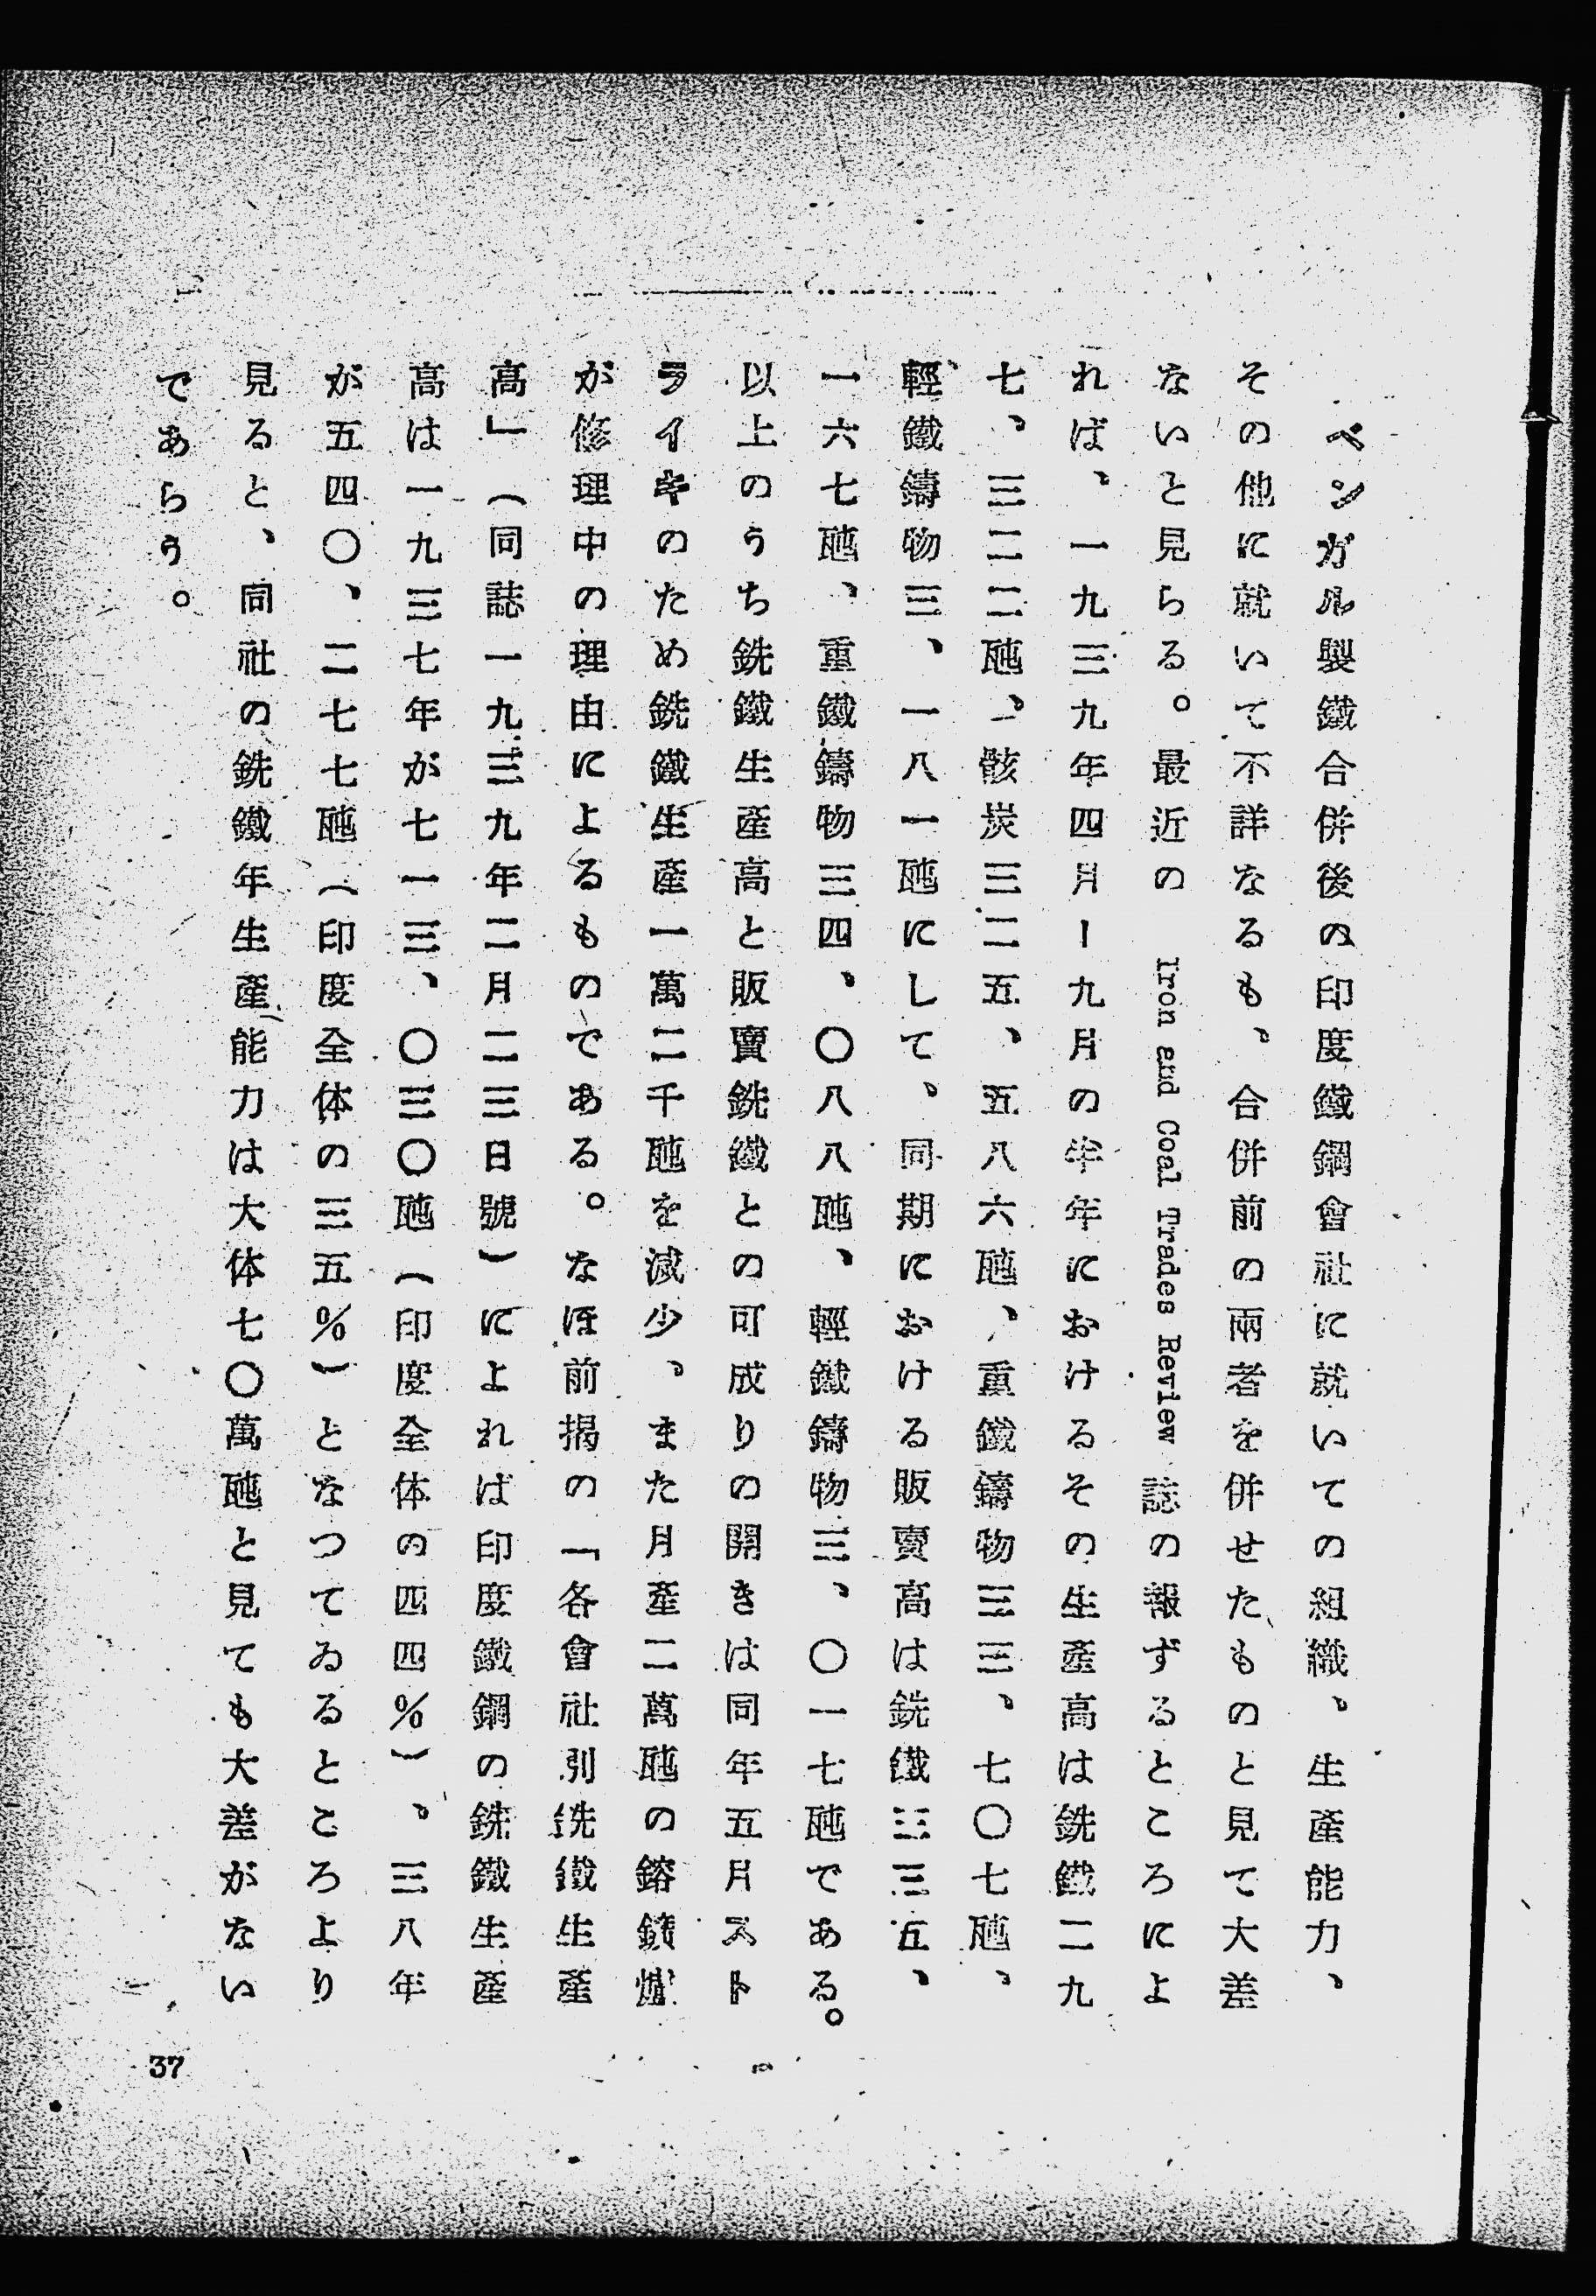 ベンガル製鐵合併後の印度鐵鋼會社に就いての組織、生產能力、
その他に就いて不詳なるも、合併前の兩者を併せたものと見て大差
ないと見らる。最近の Iron and Coal Trades Review 誌の報ずるところによ
れば、一九三九年四月ー九月の半年におけるその生產高は銑鐵二九
七、三二二瓲、骸炭三二五、五八六瓲、重鐵鑄物三三、七〇七瓲、
輕鐵鑄物三、一八一瓲にして、同期における販賣高は銑鐵三三五、
一六七瓲、重鐵鑄物三四、〇八八瓲、輕鐵鑄物三、〇一七瓲である。
以上のうち銑鐵生產高と販賣銑鐵との可成りの開きは同年五月スト
ライキのため銑鐵生產一萬二千瓲を減少、また月產二萬瓲の鎔鑛爐
が修理中の理由によるものである。なほ前揭の「各會社別銑鐵生產
高」（同誌一九三九年二月二三日號）によれば印度鐵鋼の銑鐵生產
高は一九三七年が七一三、〇三〇瓲（印度全体の四四％）、三八年
が五四〇、二七七瓲（印度全体の三五％）となつてゐるところより
見ると、同社の銑鐵年生產能力は大体七〇萬瓲と見ても大差がない
であらう。
37